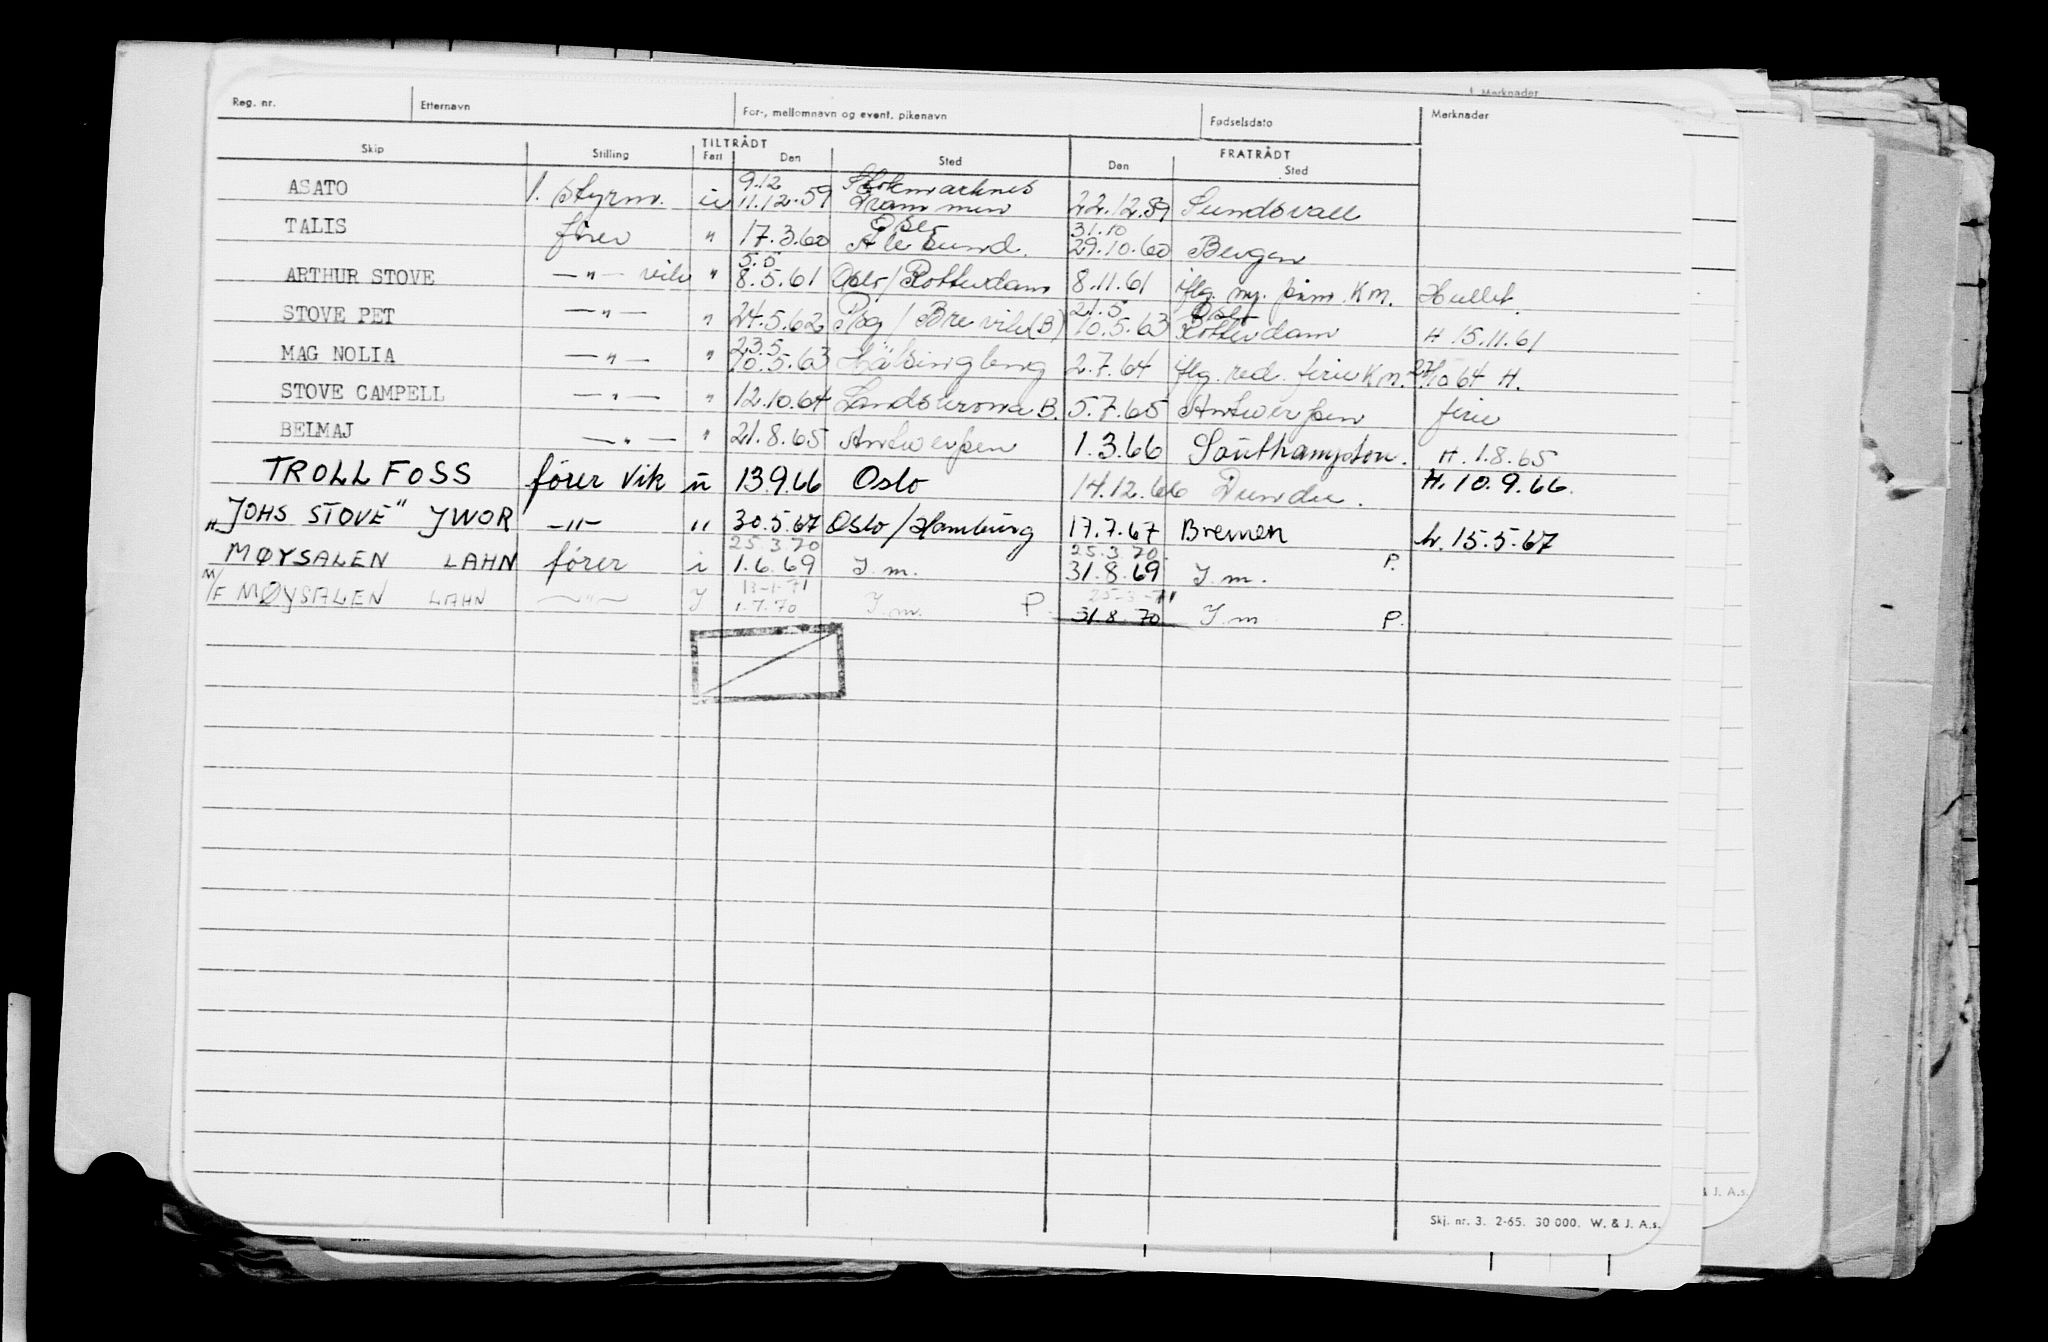 Merknader
Reg. nr. Etternavn For-, mellomnavn og event. pikenavn Fødselsdato Merknader
TILTRÅDT FRATRÅDT
Skip Stilling Fart Den Sted Den Sted
9.12 Stokmarknes
ASATO 1. styrm. u 11.12.59 Drammen 22.12.59 Sundsvall
Oslo 31.10
TALIS fører " 17.3.60 Ålesund. 29.10.60 Bergen
5.5
ARTHUR STOVE —"— vik " 8.5.61 Oslo/Rotterdam 8.11.61 iflg. KM.
21.5 Oslo
STOVE PET —"— " 24.5.62 Psg/Brevik(B) 10.5.63 Rotterdam H 15.11.61
23.5
MAG NOLIA —"— " 10.5.63 Hälsingborg 2.7.64 iflg. red. ferie KM. 27/10 64 H.
STOVE CAMPELL —"— " 12.10.64 Landskrona B. 5.7.65 Antwerpen ferie
BELMAJ —"— " 21.8.65 Antwerpen 1.3.66 Southampton. H. 1.8.65
TROLL FOSS fører vik u 13.9.66 Oslo 14.12.66 Dundee. H. 10.9.66.
"JOHS STOVE" JWOR —"— " 30.5.67 Oslo/Hamburg 17.7.67 Bremen h. 15.5.67
25.3.70 25.3.70.
MØYSALEN LAHN fører i 1.6.69 J.m. 31.8.69 J.m. P.
13-1-71 25-3-71
M/F MØYSALEN LAHN —"— J 1.7.70 J.m. P. 31.8.70 J.m P.
Skj. nr. 3. 2-65. 30 000. W. & J. A.s.
& J. A.s.